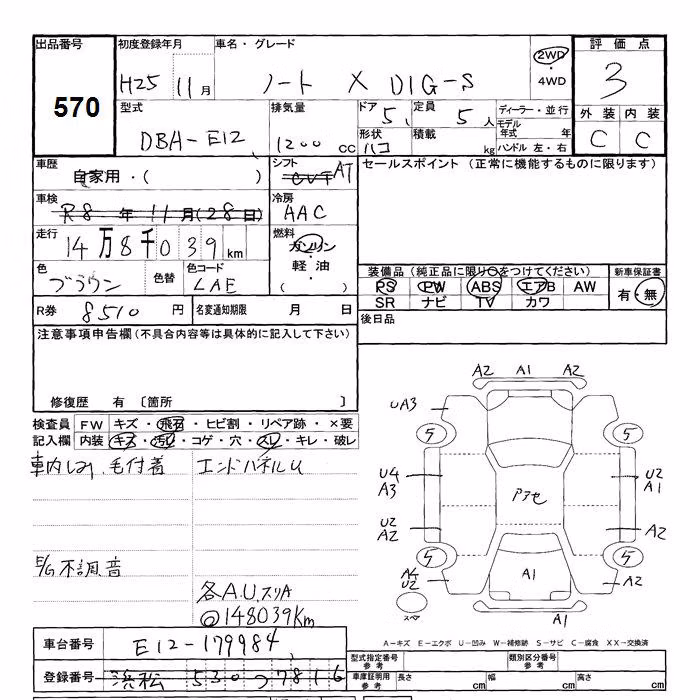 出品番号 初度登録年月 車名・グレード 評価点
570
H25 11月 ノート X DIG-S 2WD ・ 4WD 3
型式 排気量 ドア 定員 ディーラー・並行 外装 内装
DBA-E12 1200cc 5 5人 モデル年式 年
形状 積載 ハンドル 左・右 C C
ハコ kg
車歴 シフト セールスポイント(正常に機能するものに限ります)
自家用・( ) CVT AT
車検 冷房
R8年11月(28日) AAC
走行 燃料
14万8千039km ガソリン・軽油・( )
色 色替 色コード
ブラウン LAE
装備品(純正品に限り○をつけてください) 新車保証書
PS PW ABS エアB AW 有・無
SR ナビ TV カワ
R券 8510円 名変通知期限 月 日 後日品
注意事項申告欄(不具合内容等は具体的に記入して下さい)
修復歴 有 〔箇所 〕
検査員 FW キズ・飛石・ヒビ割・リペア跡・×要
記入欄 内装 キズ・汚れ・コゲ・穴・スレ・キレ・破レ
車内しみ、毛付着 エンドパネルU
E/G不調音
各A.U.スリA
@148039Km
A2 A1 A2
UA3
5 5
U4 A3 U2 A1
アアセ
U2 A2 A2
5 5
A4 U2 A1 A2
スペア A1
A-キズ E-エクボ U-凹み W-補修跡 S-サビ C-腐食 XX-交換済
車台番号 E12-179984
登録番号 浜松 530 つ 7816
型式指定番号 参考 類別区分番号 参考
車庫証明用 参考 長さ cm 幅 cm 高さ cm